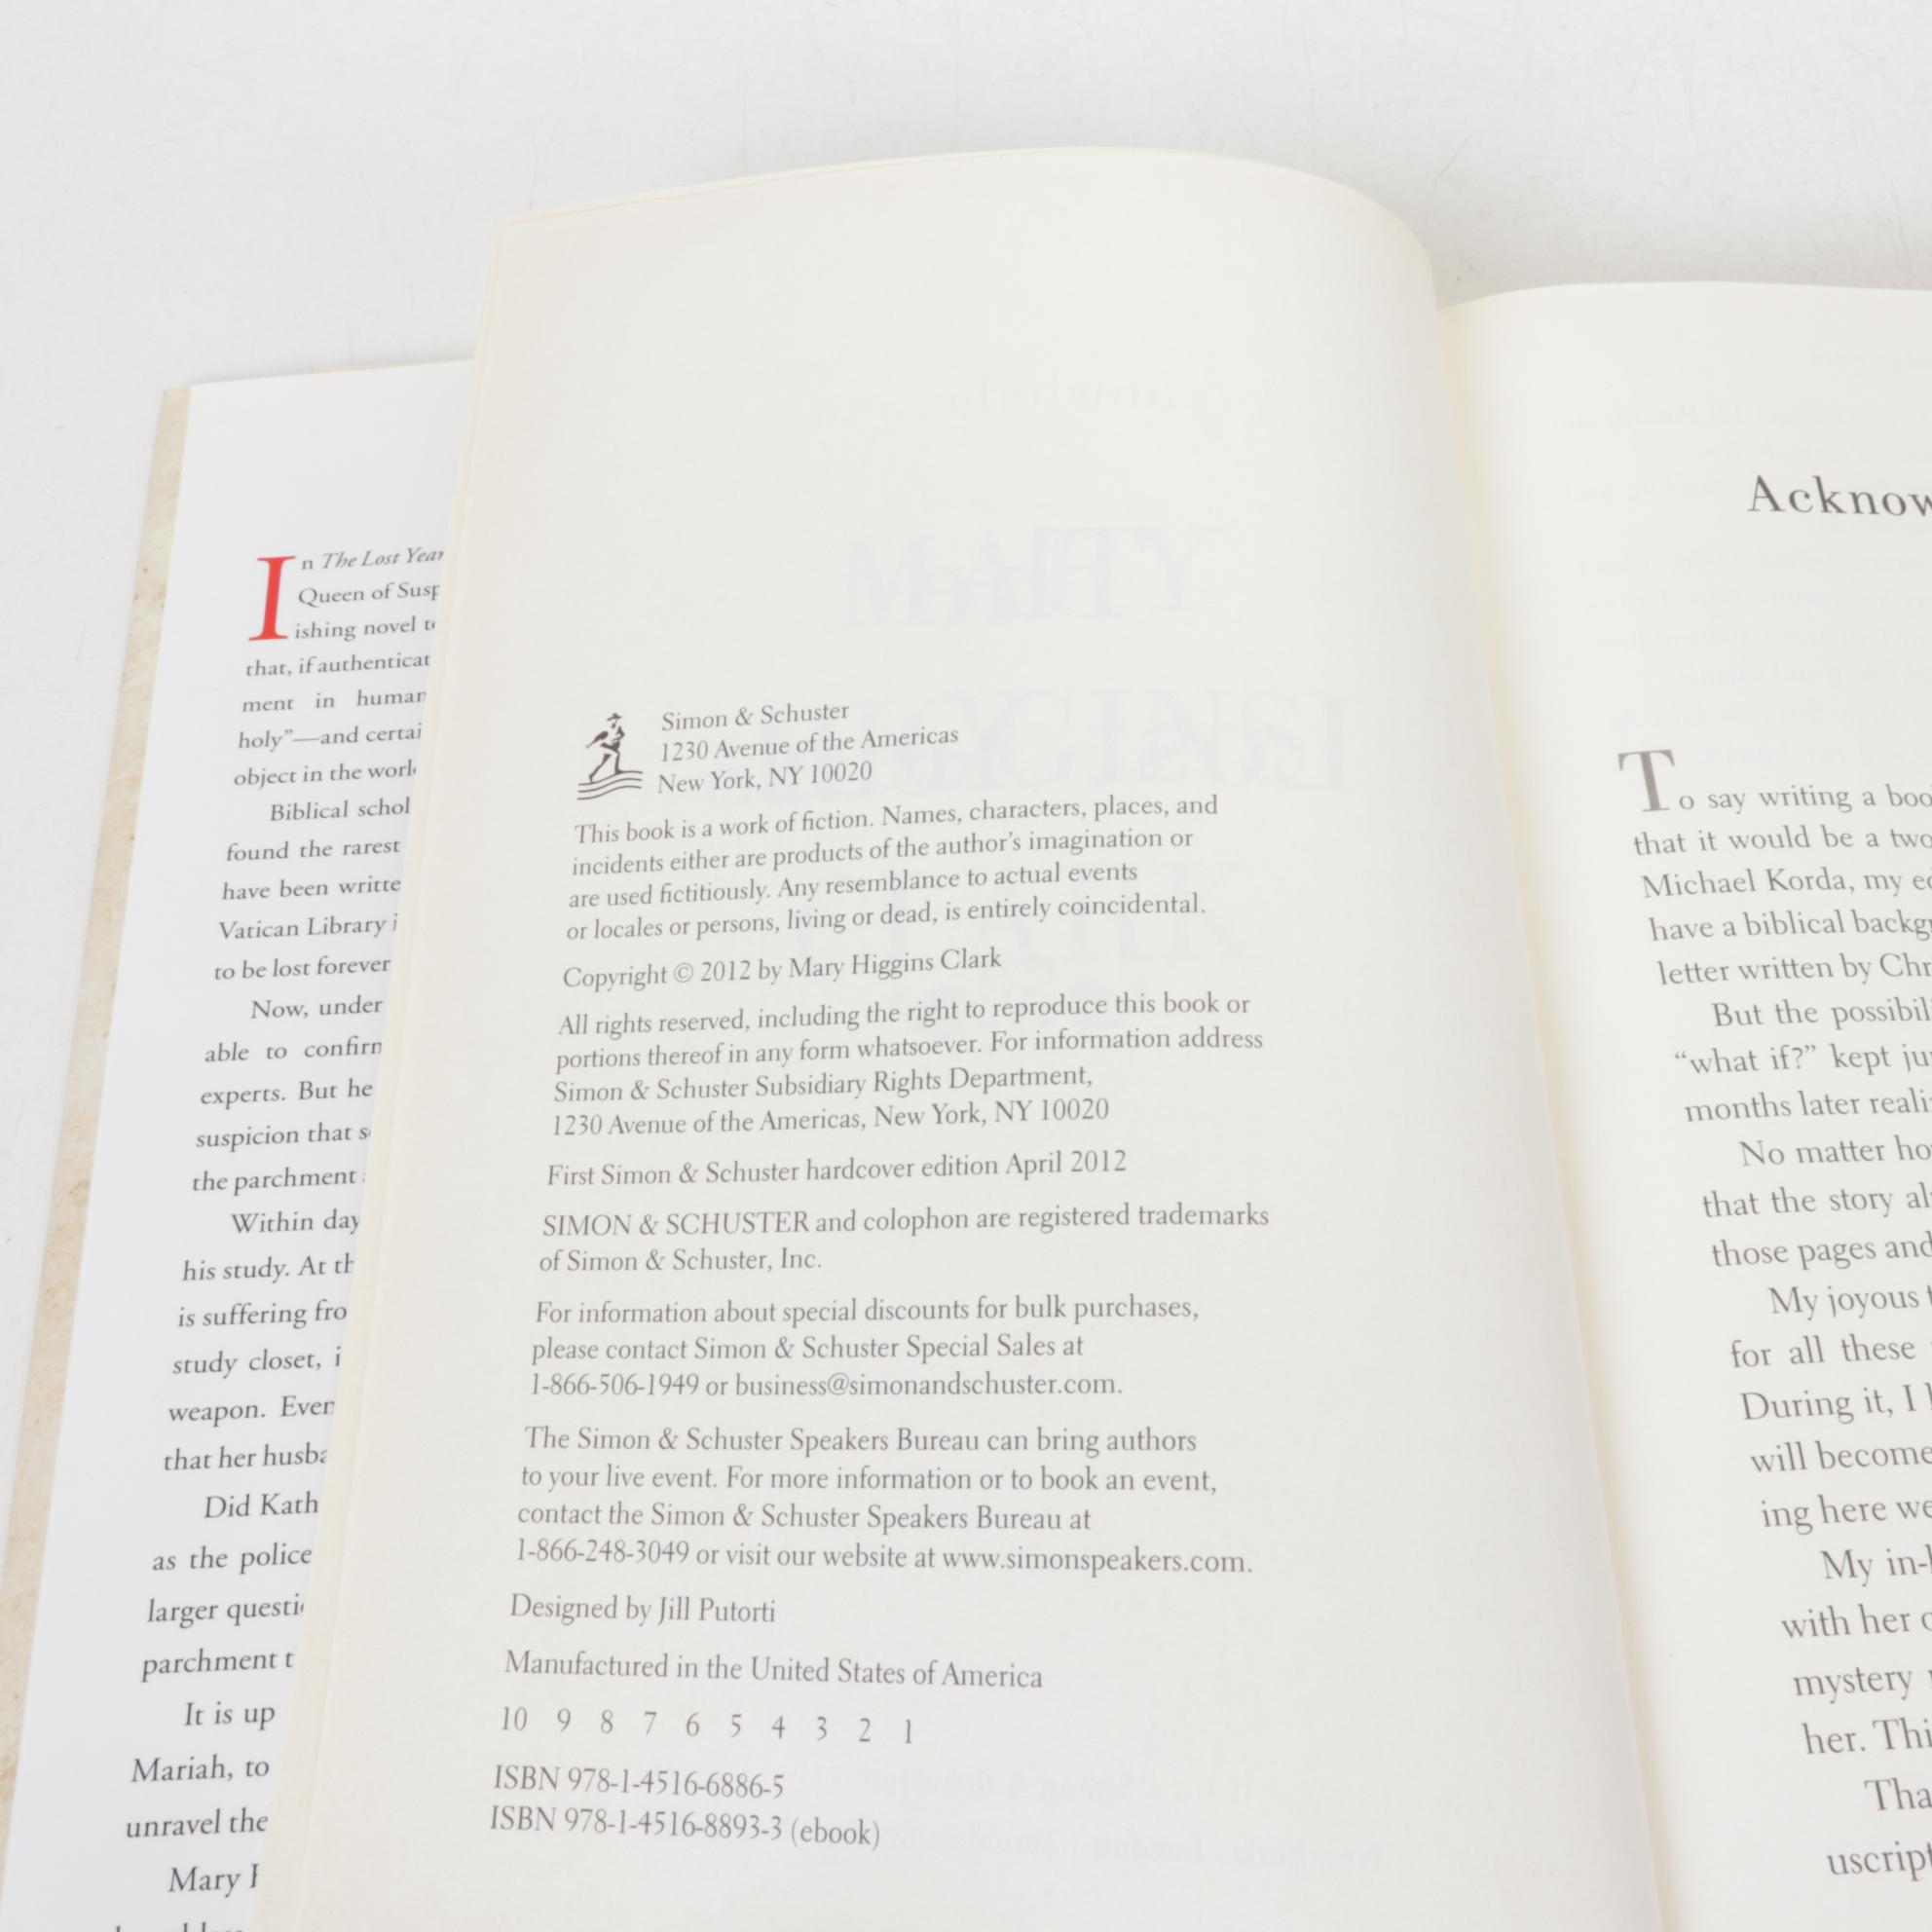 In The Lost
Queen of
ishing novel
that, if
ment in human
holy”—and
object in the
Biblical
found the rarest
have been
Vatican Library
to be lost forever
Now, under
able to
experts. But he
suspicion that
the parchment
Within
his study. At
is suffering
study closet,
weapon.
that her
Did
as the police
larger
parchment
It is up
Mariah, to
unravel the
Mary
Simon & Schuster
1230 Avenue of the Americas
New York, NY 10020
This book is a work of fiction. Names, characters, places, and
incidents either are products of the author’s imagination or
are used fictitiously. Any resemblance to actual events
or locales or persons, living or dead, is entirely coincidental.
Copyright © 2012 by Mary Higgins Clark
All rights reserved, including the right to reproduce this book or
portions thereof in any form whatsoever. For information address
Simon & Schuster Subsidiary Rights Department,
1230 Avenue of the Americas, New York, NY 10020
First Simon & Schuster hardcover edition April 2012
SIMON & SCHUSTER and colophon are registered trademarks
of Simon & Schuster, Inc.
For information about special discounts for bulk purchases,
please contact Simon & Schuster Special Sales at
1-866-506-1949 or business@simonandschuster.com.
The Simon & Schuster Speakers Bureau can bring authors
to your live event. For more information or to book an event,
contact the Simon & Schuster Speakers Bureau at
1-866-248-3049 or visit our website at www.simonspeakers.com.
Designed by Jill Putorti
Manufactured in the United States of America
10 9 8 7 6 5 4 3 2 1
ISBN 978-1-4516-6886-5
ISBN 978-1-4516-8893-3 (ebook)
To say writing a
that it would be a
Michael Korda, my
have a biblical
letter written by
But the
“what if?” kept
months later
No matter
that the story
those pages and
My joyous
for all these
During it, I
will become
ing here
My
with her
mystery
her.